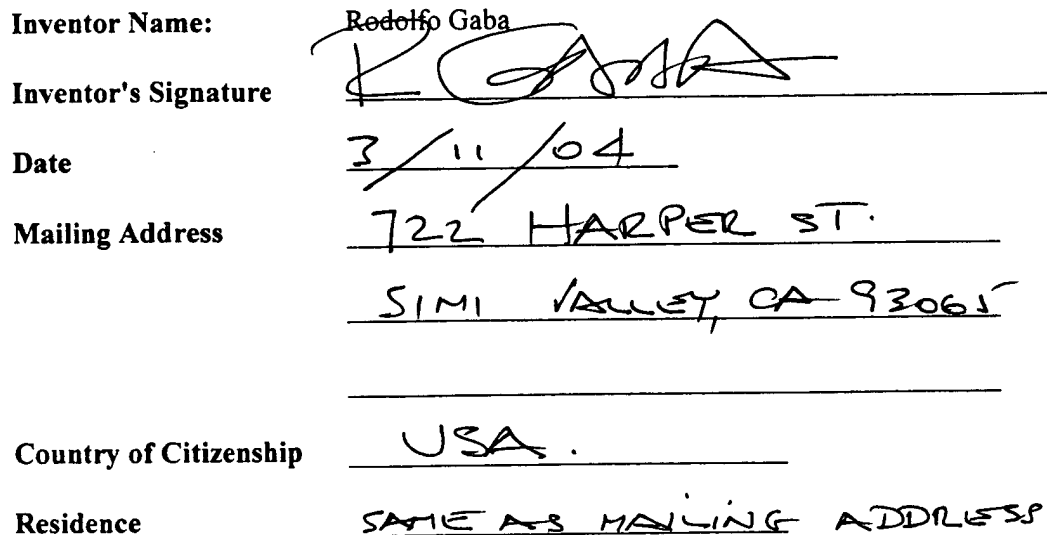 Inventor Name: Rodolfo Gaba
Inventor's Signature R Gaba
Date 3/11/04
Mailing Address 722 HARPER ST.
SIMI VALLEY, CA 93065
Country of Citizenship USA.
Residence SAME AS MAILING ADDRESS